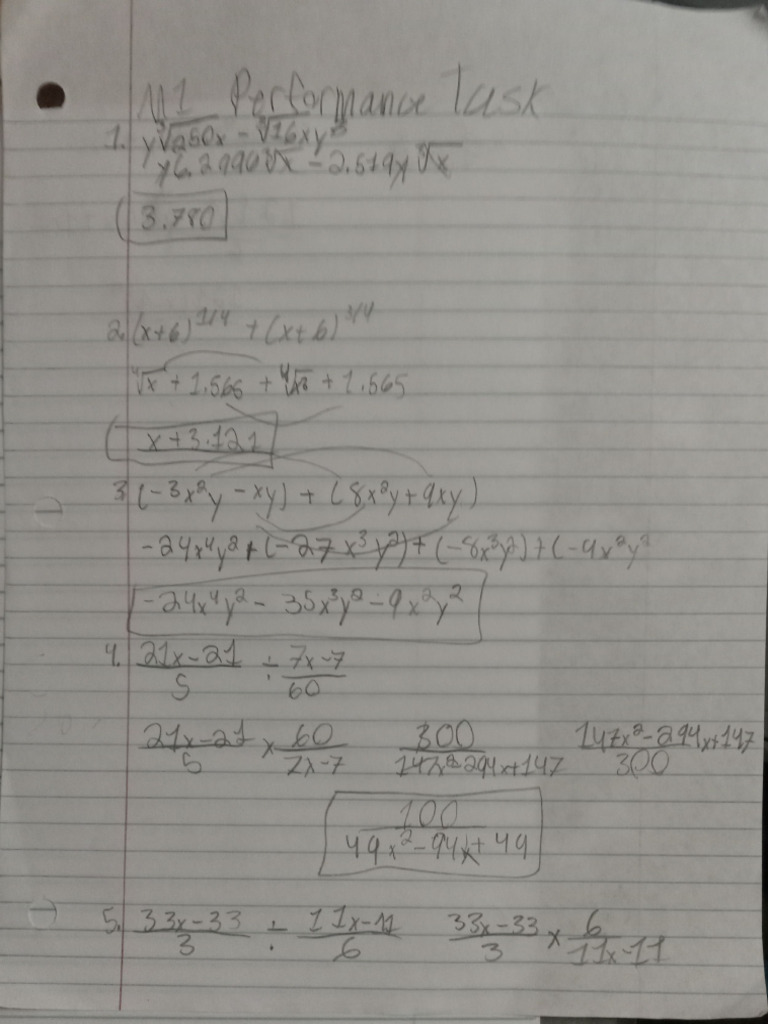 M1 Performance Task
1. y∛250x - ∛16xy³
y6.299∛x - 2.519y∛x
3.780
2. (x+6)^1/4 + (x+6)^3/4
∜x + 1.565 + ∜x³ + 1.565
x+3.121
3. (-3x²y - xy) + (8x²y + 9xy)
-24x⁴y² + (-27x³y²) + (-8x³y²) + (-9x²y²
-24x⁴y² - 35x³y² - 9x²y²
4. 21x-21/5 ÷ 7x-7/60
21x-21/5 × 60/7x-7 300/147x²-294x+147 147x²-294x+147/300
100/49x²-94x+49
5. 33x-33/3 ÷ 11x-11/6 33x-33/3 × 6/11x-11